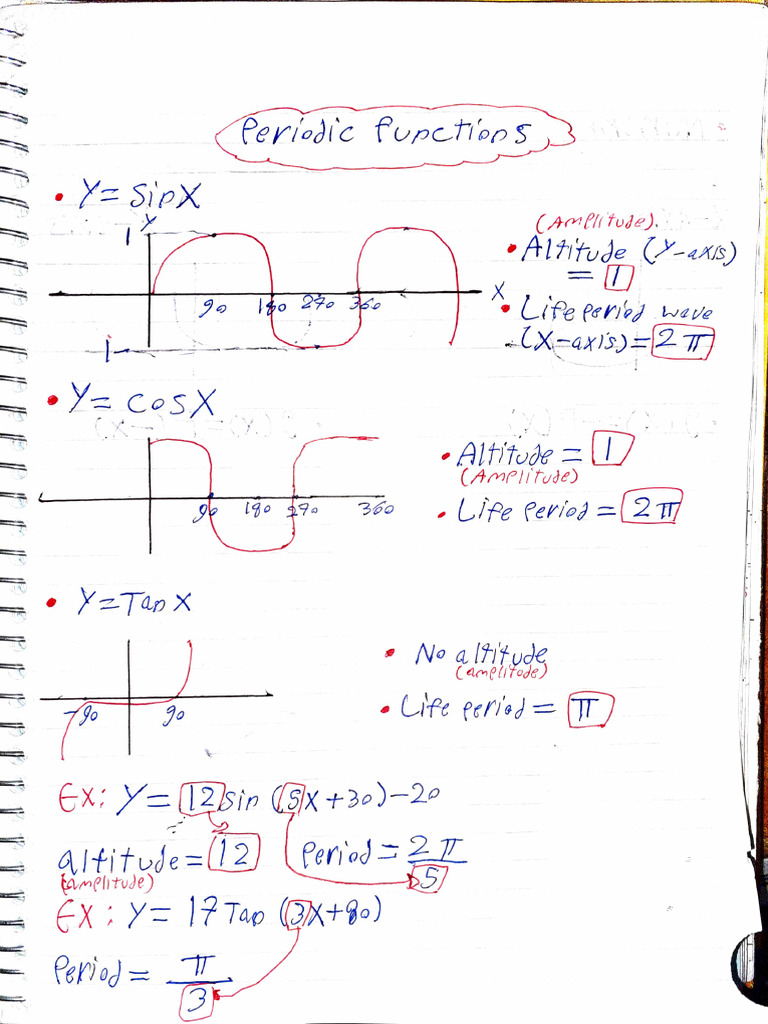 Periodic Functions
• Y = sin X
Y
1
90 180 270 360
X
1
(Amplitude).
• Altitude (Y-axis)
= 1
• Life period wave
(X-axis) = 2π
• Y = cos X
90 180 270 360
• Altitude = 1
(Amplitude)
• Life period = 2π
• Y = Tan X
-90 90
• No altitude
(amplitude)
• Life period = π
Ex: Y = 12 sin (5X+30) - 20
altitude = 12 Period = 2π/5
(amplitude)
Ex: Y = 17 Tan (3X+80)
Period = π/3